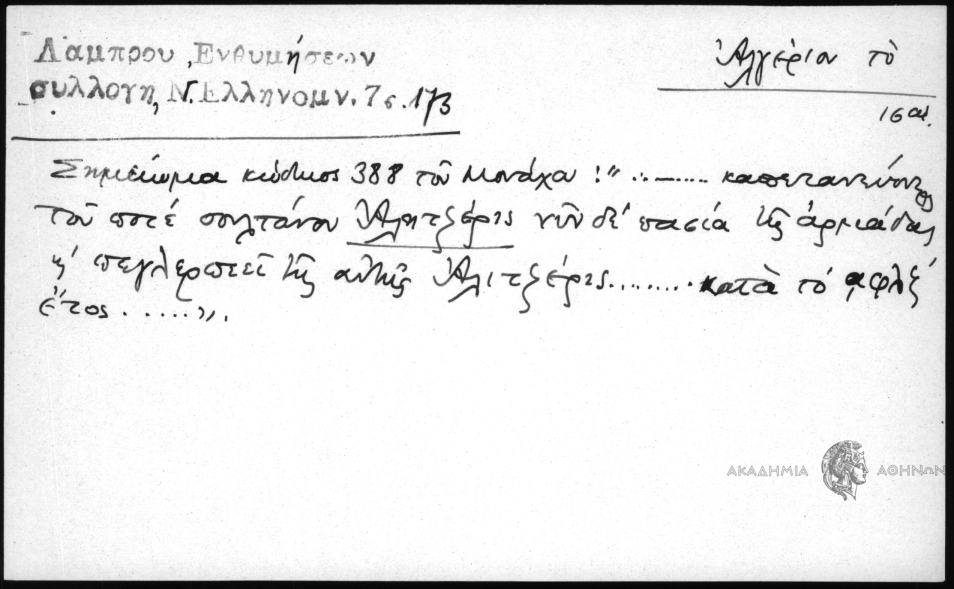 Λάμπρου, Ενθυμήσεων
συλλογή, Ν. Ελληνομν. 7 σ. 173
Ἀλγέριον τὸ
16 αἰ.
Σημείωμα κώδικος 388 τοῦ Μονάχου: "......... καπετανεύοντος
τοῦ ποτέ σουλτάνου Ἀλητζέρις νῦν δέ πασιά τῆς ἀρμάδας
κ' πεγλερπεεῖ τῆς αὐτῆς Ἀλιτζέρις ......... κατὰ τό αφλξ´
ἔτος ......".
ΑΚΑΔΗΜΙΑ ΑΘΗΝΩΝ